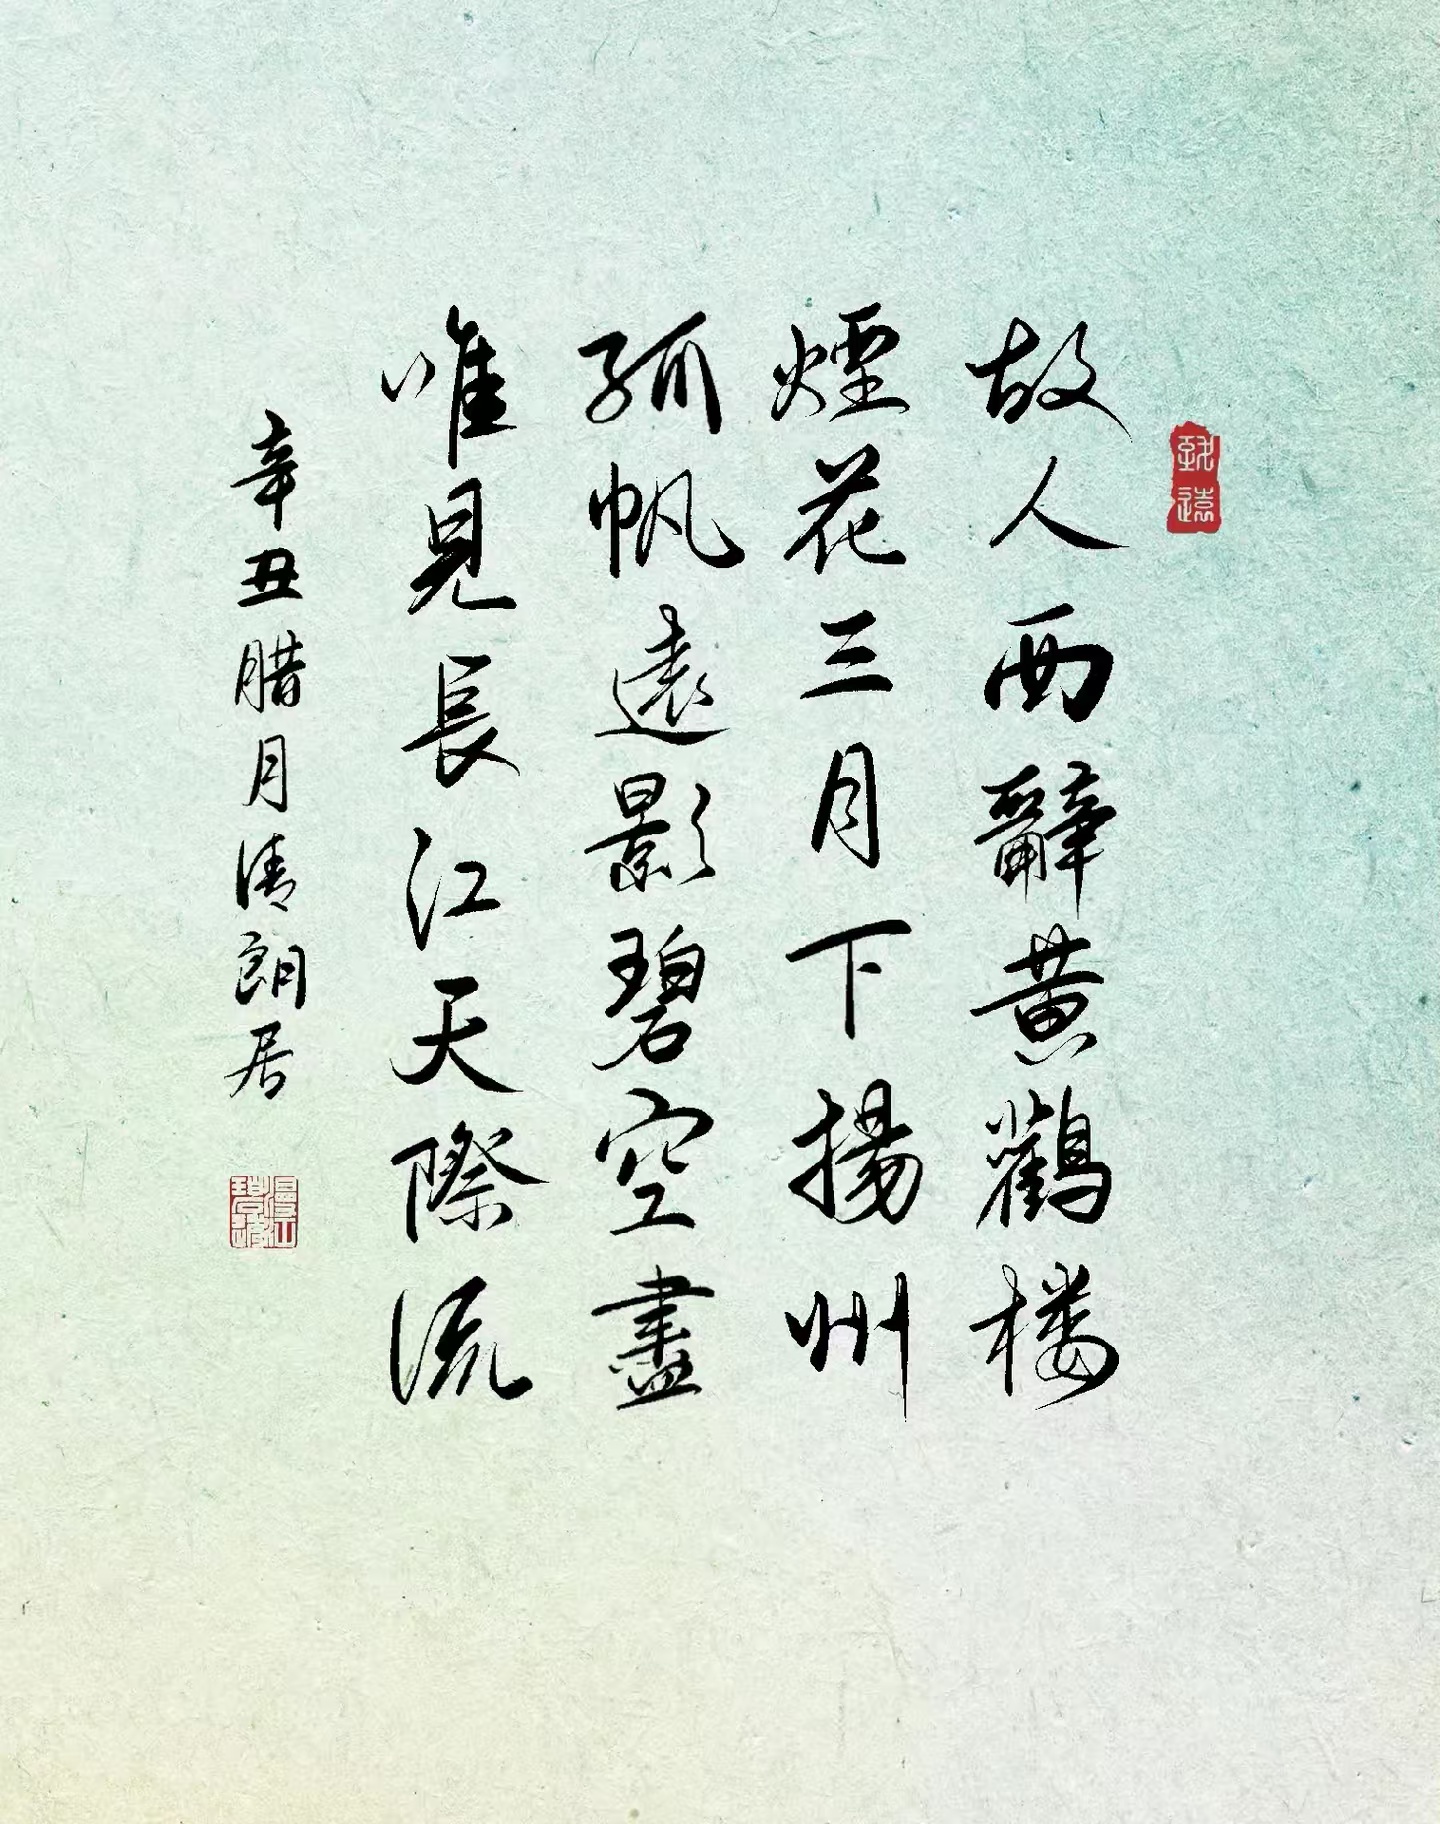 致遠
故人西辭黄鶴楼
煙花三月下揚州
孤帆遠影碧空盡
唯見長江天際流
辛丑腊月清朗居